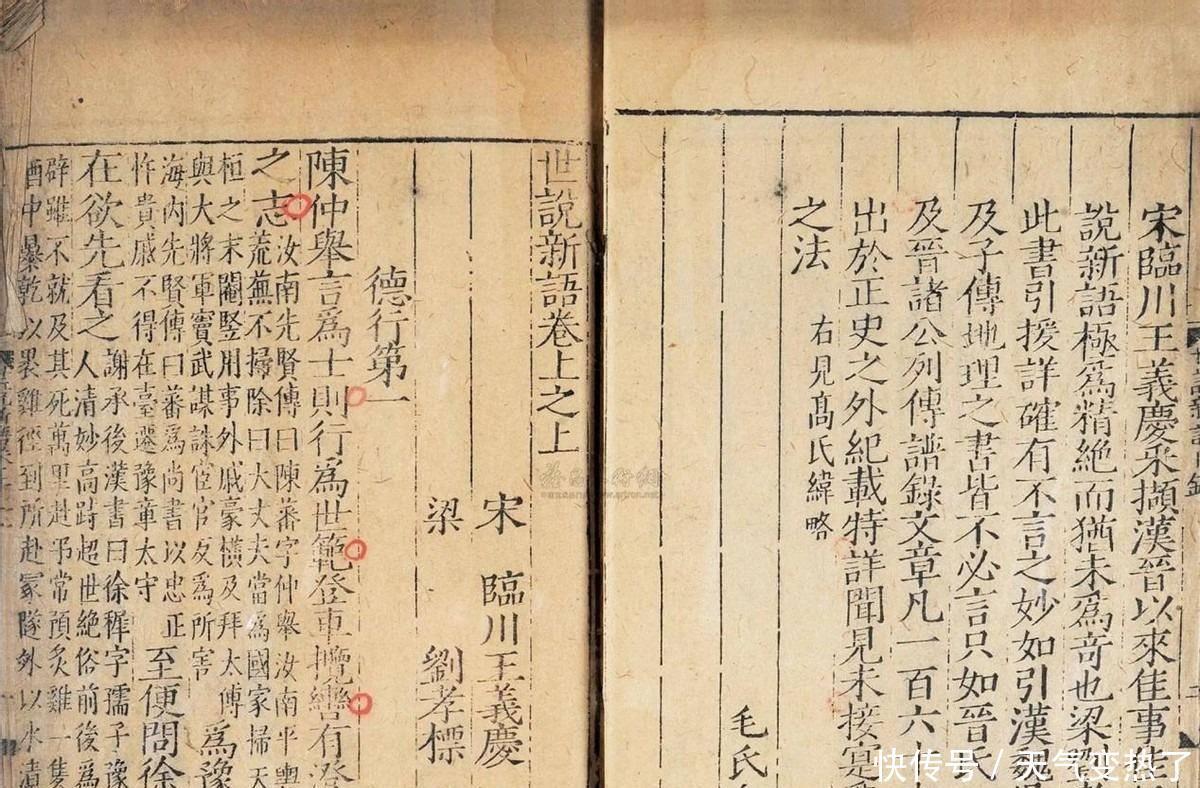 宋臨川王義慶采擷漢晉以來佳事佳
說新語極為精絕而猶未為奇也梁劉孝
此書引援詳確有不言之妙如引漢魏吳
及子傳地理之書皆不必言只如晉氏
及晉諸公列傳譜錄文章凡一百六
出於正史之外紀載特詳聞見未接寔
之法 右見高氏緯略
毛氏
世說新語卷上之上
宋 臨川王義慶
梁 劉孝標
德行第一
陳仲舉言為士則行為世範登車攬轡有澄
之志
汝南先賢傳曰陳蕃字仲舉汝南平輿
荒蕪不掃除曰大丈夫當為國家掃天
桓之末閹豎用事外戚豪橫及拜太傅
與大將軍竇武謀誅宦官反為所害
為豫
海內先賢傳曰蕃為尚書以忠正
忤貴戚不得在臺遷豫章太守
至便問徐
在欲先看之
謝承後漢書曰徐穉字孺子豫
人清妙高跱超世絕俗前後為
辟雖不就及其死萬里赴弔常預炙雞一隻
酒中暴乾以裹雞徑到所赴冢隧外以水漬
快传号/天气变热了